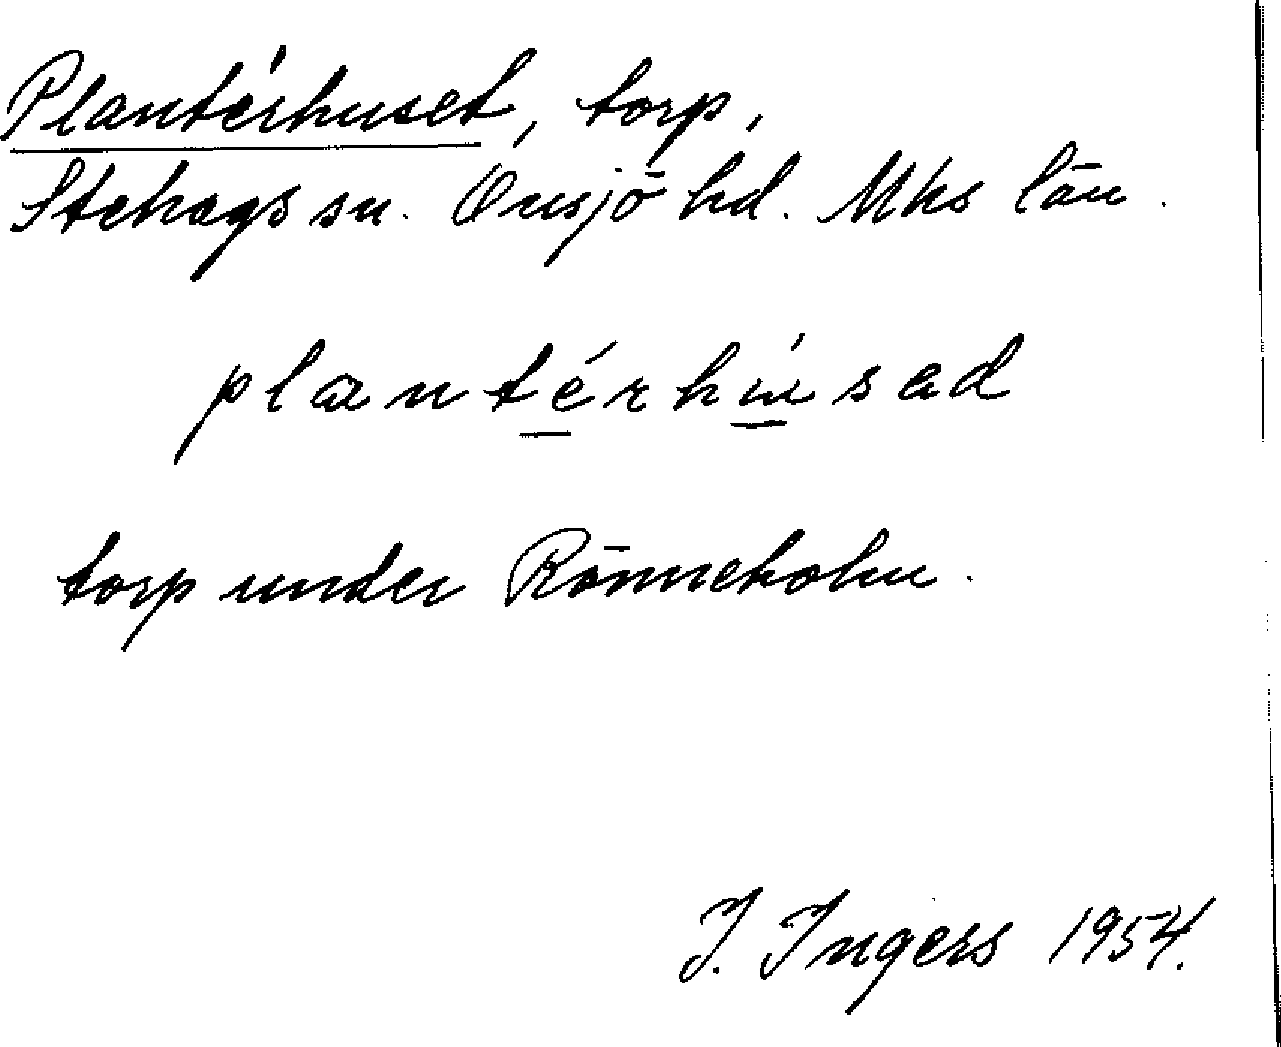 Plantérhuset, torp,
Stehags sn. Onsjö hd. Mhs län.
plantérhúsad
torp under Rönneholm.
I. Ingers 1954.